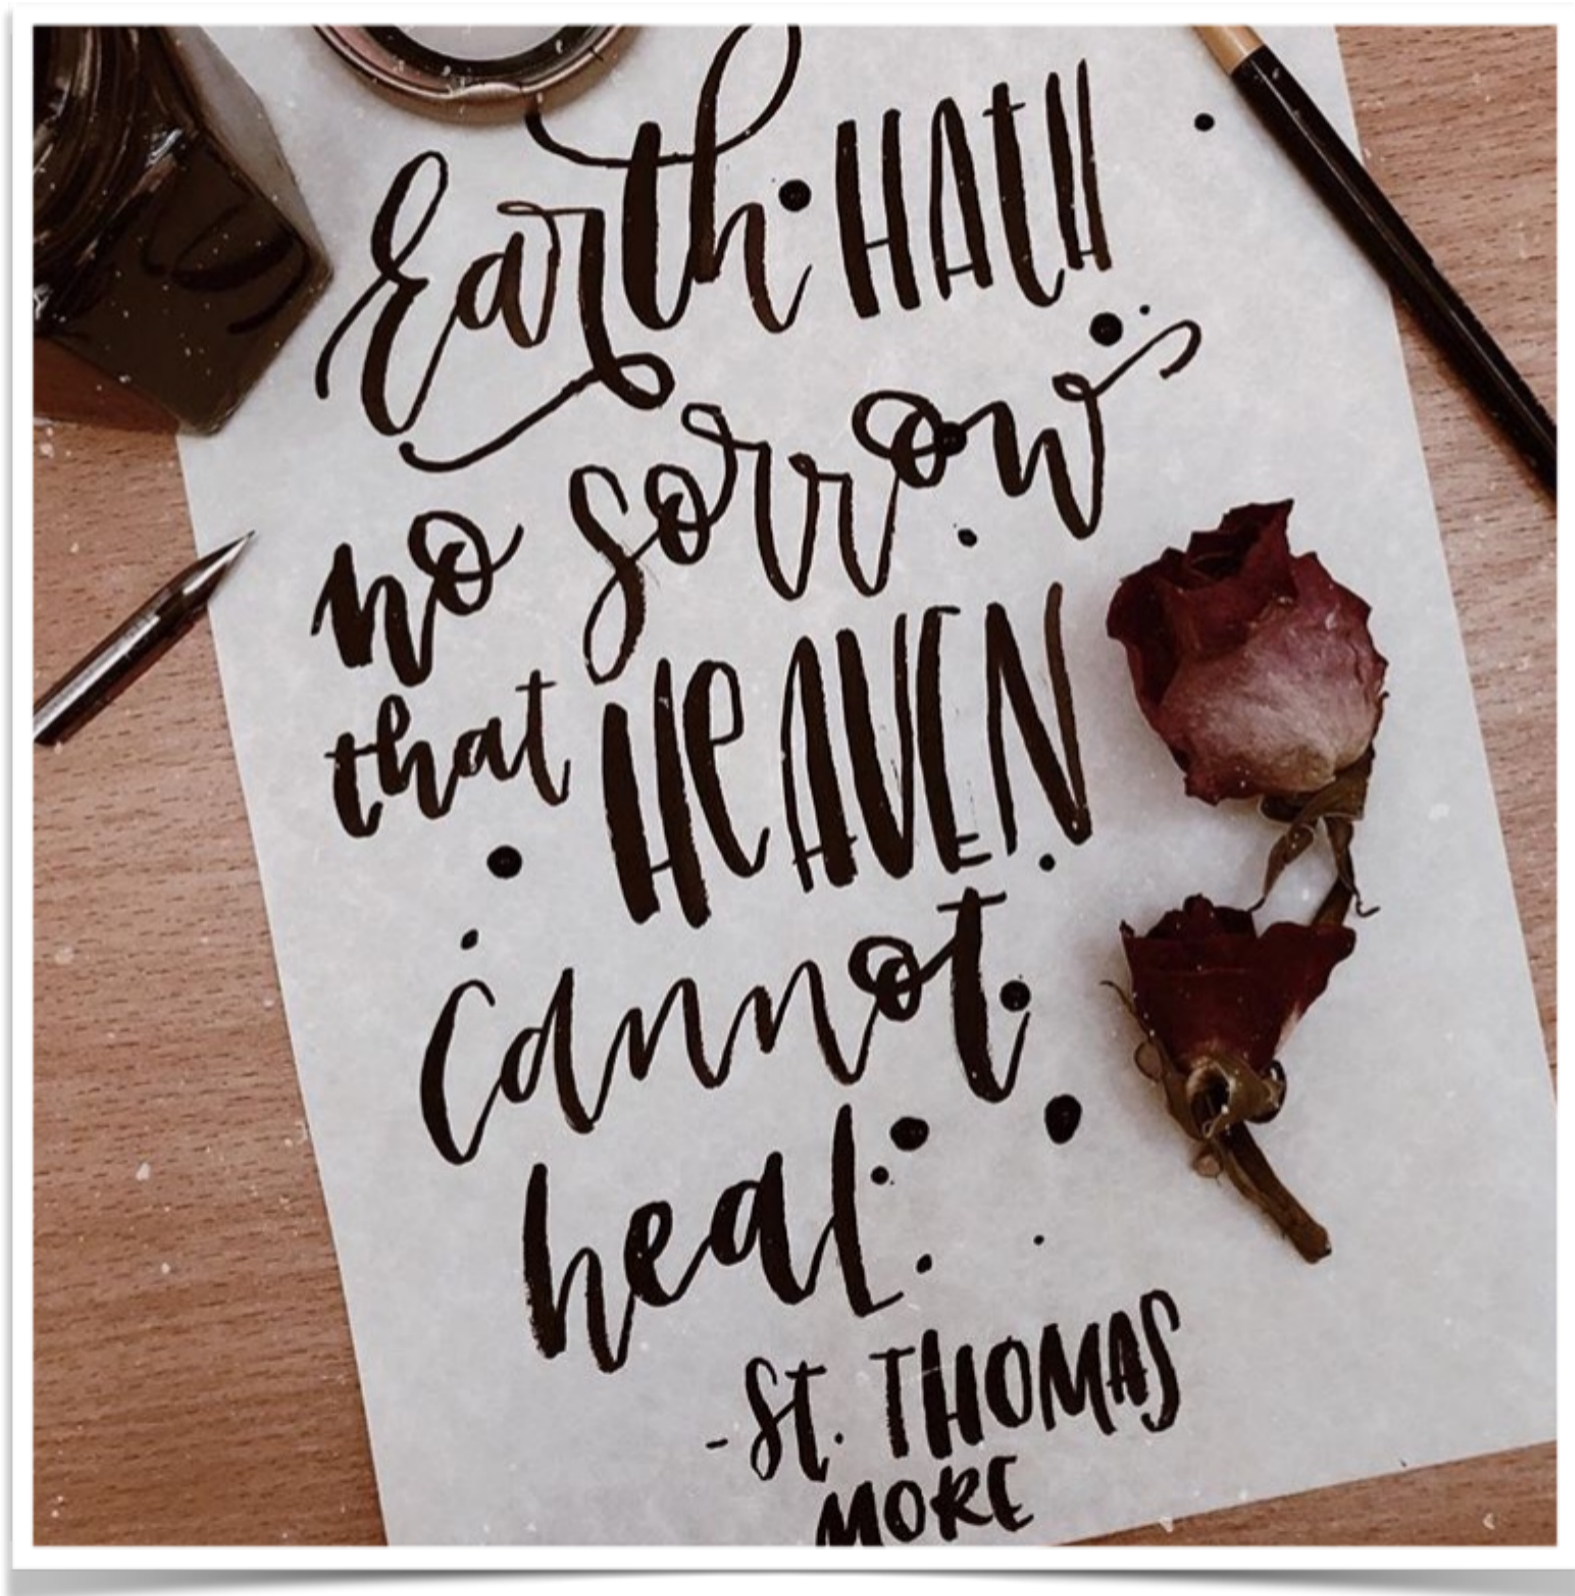 Earth HAtH
no sorrow
that HeAVEN
cannot
heal.
-St. THOMAS
MORE